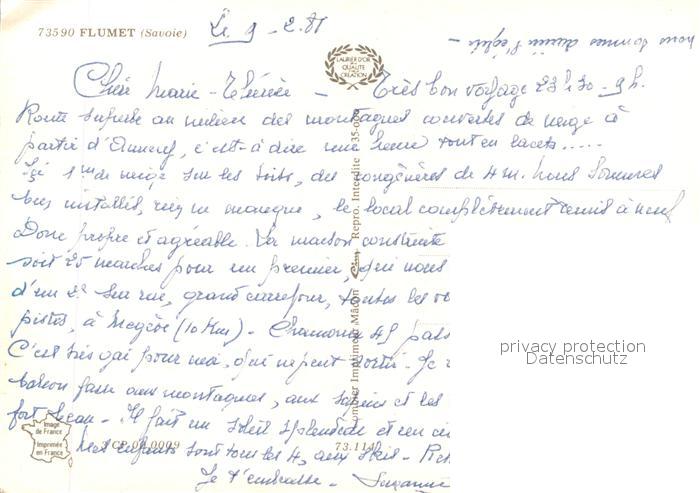 73590 FLUMET (Savoie)
Le 9-2.81
nous sommes derrière l'église -
LAURIER D'OR
DE LA
QUALITÉ
CRÉATION
Chère Marie-Thérèse - Très bon voyage 23h30-9h.
Route superbe au milieu des montagnes couvertes de neige à
partir d'Annecy, c'est-à-dire une heure tout en lacets.....
Ici 1m de neige sur les toits, des congères de 4m. Nous sommes
bien installés, rien ne manque, le local complètement remis à neuf
Donc propre et agréable. La maison construite
soit 25 marches pour un premier, qui nous
d'un 2e sur rue, grand carrefour, toutes les vo
pistes, à Megève (10 km) - Chamonix 45 pass
C'est très gai pour moi, qui ne peut sortir - Je
balcon face aux montagnes, aux sapins et les
fort beau - Il fait un soleil splendide et un ci
Mes enfants sont tous les 4, aux skis -
Je t'embrasse - Suzanne
Combier Imprimeur Mâcon Cim Repro. Interdite
privacy protection
Datenschutz
Image
de France
Imprimée
en France
3 CP 0009
73.114